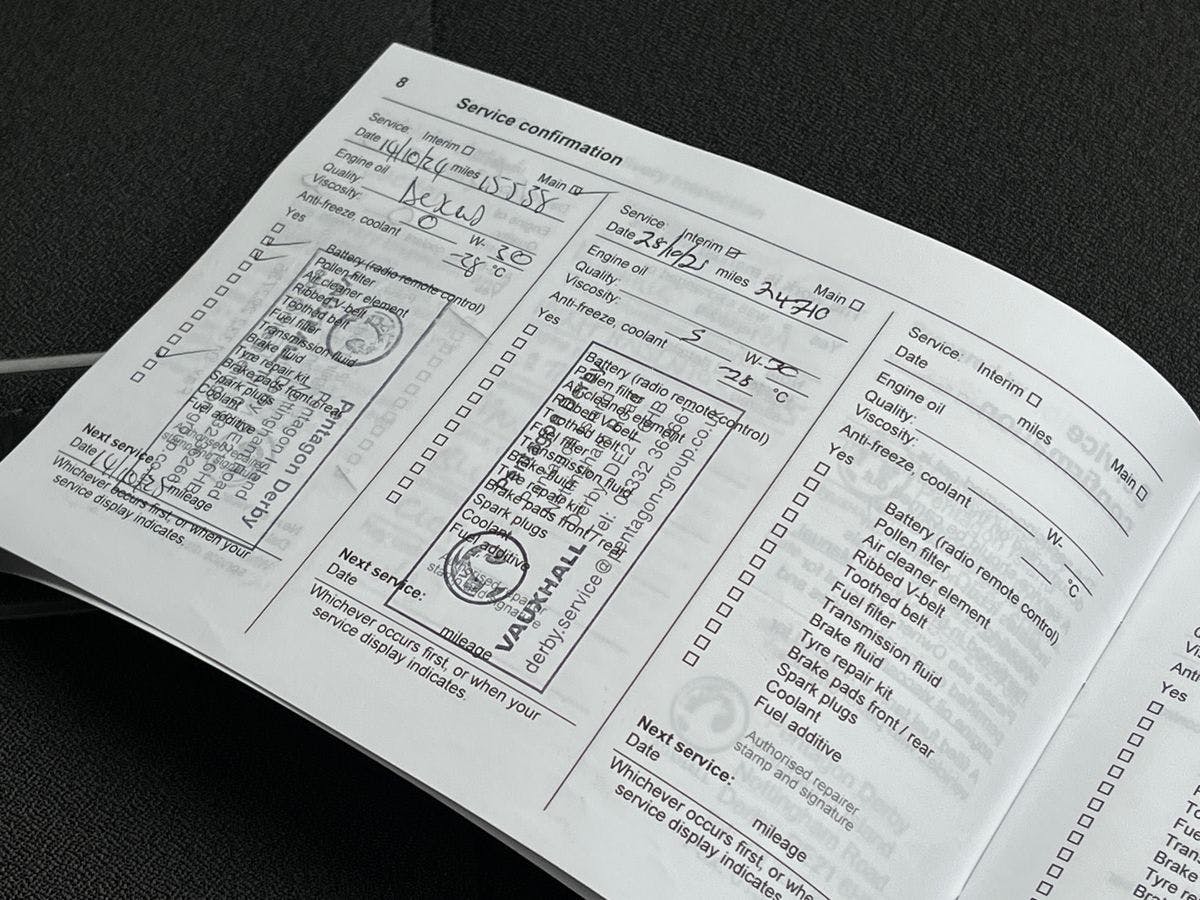 8
Service confirmation
Service: Interim □ Main ☑
Date 14/10/24 miles 15538
Engine oil
Quality: Dexos
Viscosity: 0 W- 30
Anti-freeze, coolant -28 °C
Yes
Battery (radio remote control)
Pollen filter
Air cleaner element
Ribbed V-belt
Toothed belt
Fuel filter
Transmission fluid
Brake fluid
Tyre repair kit
Brake pads front / rear
Spark plugs
Coolant
Fuel additive
Pentagon Derby
Next service:
Date 14/10/25 mileage
Whichever occurs first, or when your
service display indicates.
Service: Interim ☑ Main □
Date 28/10/25 miles 24710
Engine oil
Quality:
Viscosity: 5 W- 30
Anti-freeze, coolant -28 °C
Yes
Battery (radio remote control)
Pollen filter
Air cleaner element
Ribbed V-belt
Toothed belt
Fuel filter
Transmission fluid
Brake fluid
Tyre repair kit
Brake pads front / rear
Spark plugs
Coolant
Fuel additive
VAUXHALL
derby.service@pentagon-group.co.uk
Next service:
Date mileage
Whichever occurs first, or when your
service display indicates.
Service: Interim □ Main □
Date miles
Engine oil
Quality:
Viscosity: W-
Anti-freeze, coolant °C
Yes
Battery (radio remote control)
Pollen filter
Air cleaner element
Ribbed V-belt
Toothed belt
Fuel filter
Transmission fluid
Brake fluid
Tyre repair kit
Brake pads front / rear
Spark plugs
Coolant
Fuel additive
Authorised repairer
stamp and signature
Next service:
Date mileage
Whichever occurs first, or whe
service display indicates.
Yes